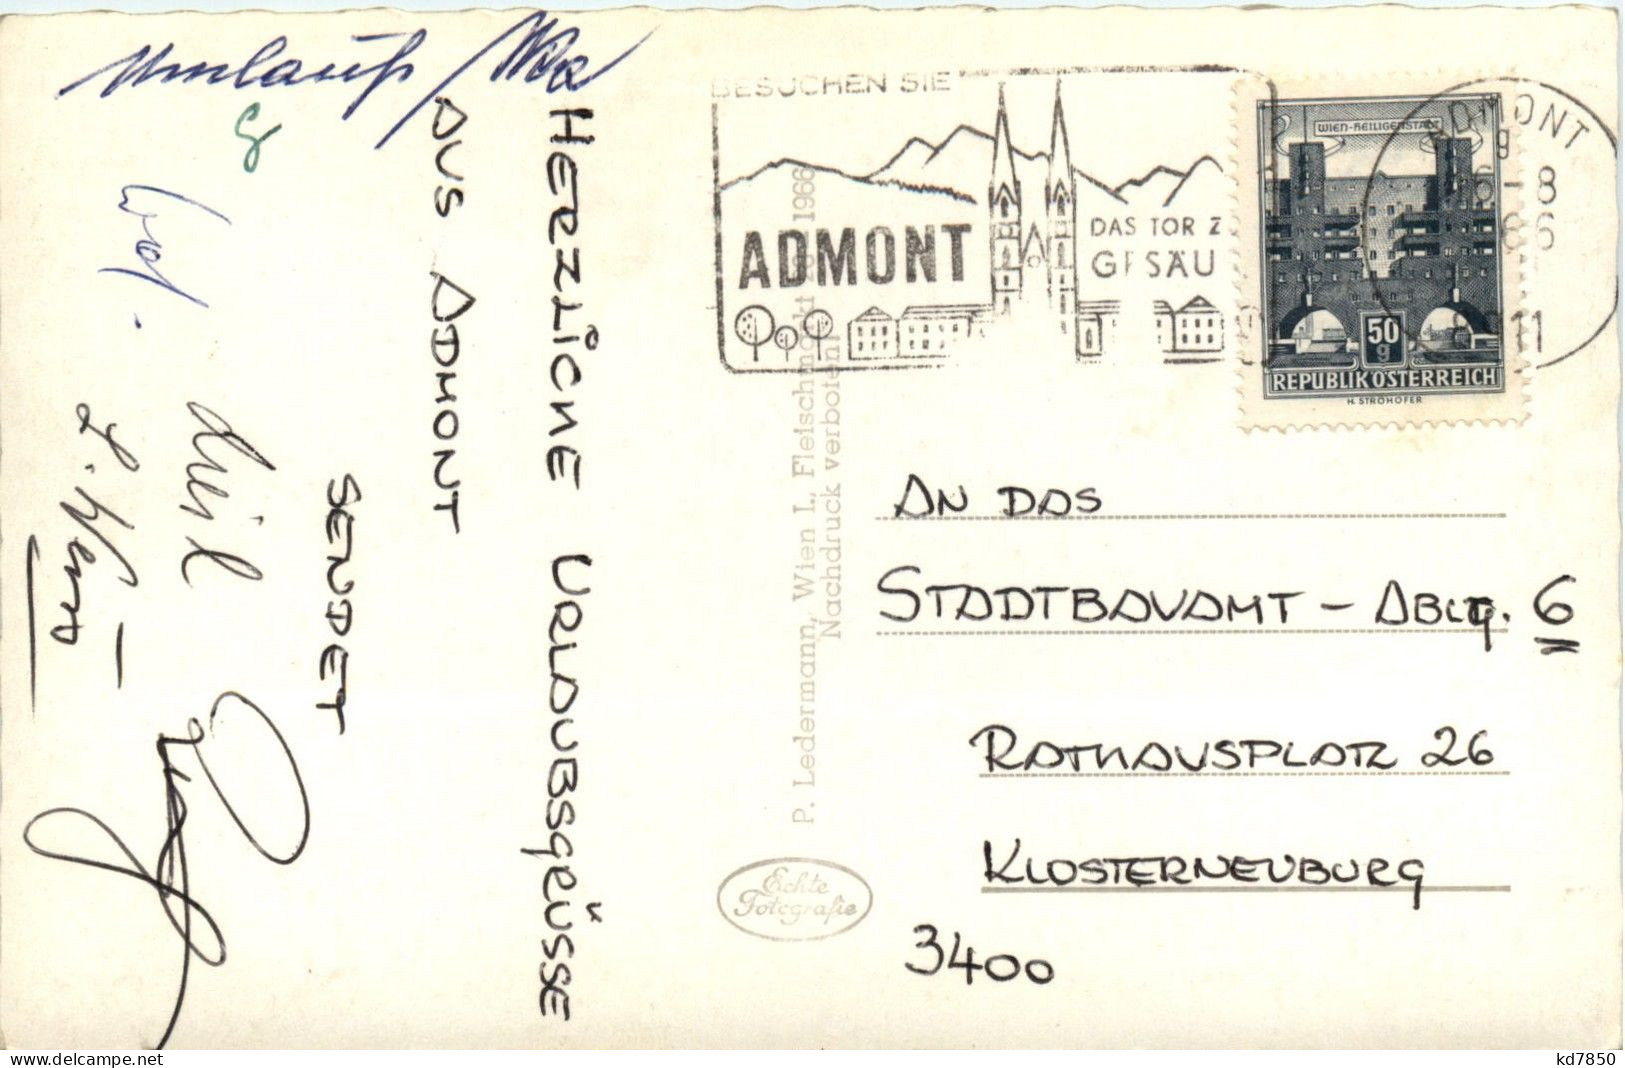 Umlauf /
HERZLICHE URLAUBSGRÜSSE
AUS ADMONT
SENDET
BESUCHEN SIE
ADMONT
DAS TOR Z
GESÄU
WIEN-HEILIGENSTADT
50
g
REPUBLIK ÖSTERREICH
H. STROHOFER
ADMONT
11
P. Ledermann, Wien I., Fleischmarkt 1966
Nachdruck verboten!
Echte
Fotografie
AN DAS
STADTBAUAMT – ABLTG. 6
RATHAUSPLATZ 26
KLOSTERNEUBURG
3400
www.delcampe.net
kd7850